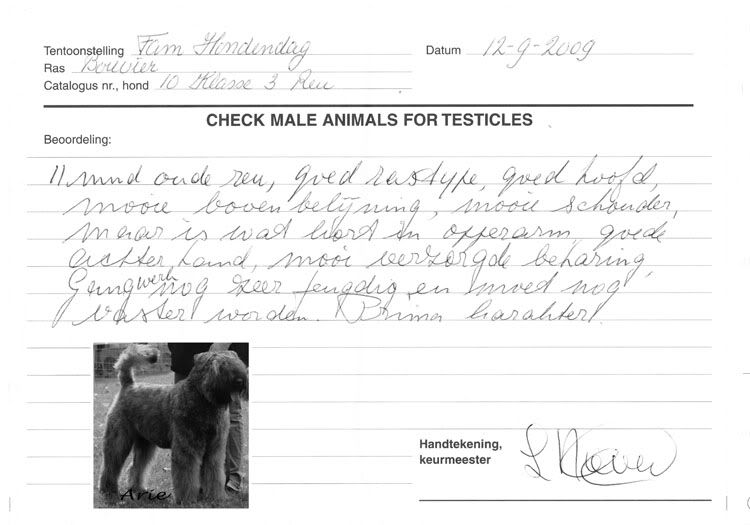 Tentoonstelling Fam Hondendag Datum 12-9-2009
Ras Bouvier
Catalogus nr., hond 10 Klasse 3 Reu
CHECK MALE ANIMALS FOR TESTICLES
Beoordeling:
11 mnd oude reu, goed rastype, goed hoofd,
mooie boven belijning, mooie schouder,
maar is wat kort in opperarm, goede
achter hand, mooi verzorgde beharing,
Gangwerk nog zeer jeugdig en moet nog
vaster worden. Prima karakter!
Arie
Handtekening,
keurmeester